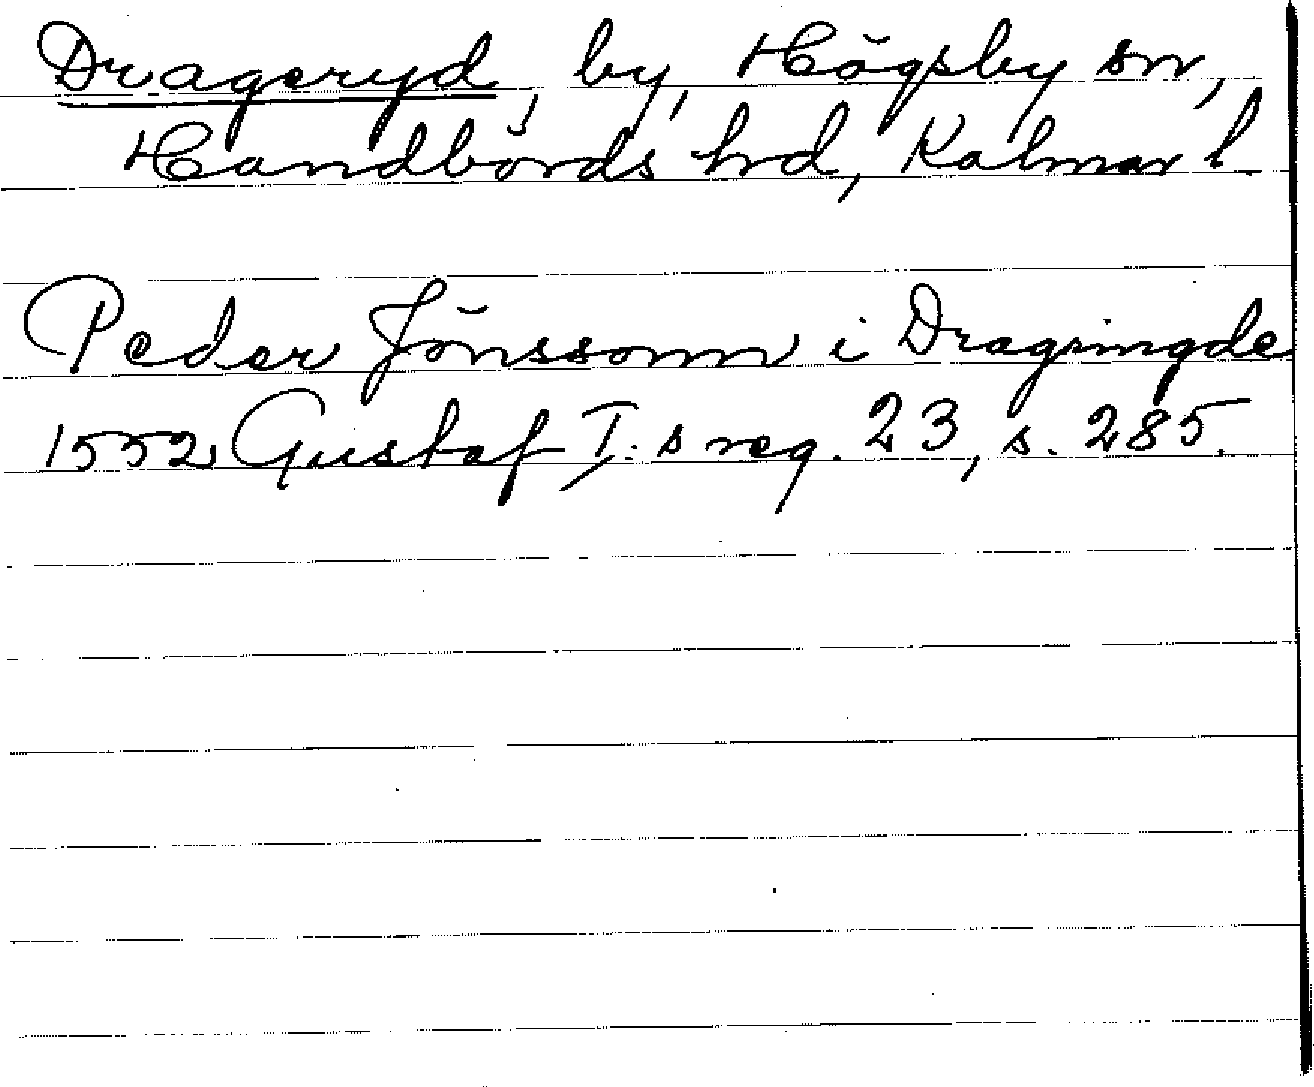 Drageryd, by, Högsby sn,
Handbörds hrd, Kalmar l.
Peder Jönssonn i Dragringde
1552 Gustaf I:s reg. 23, s. 285.